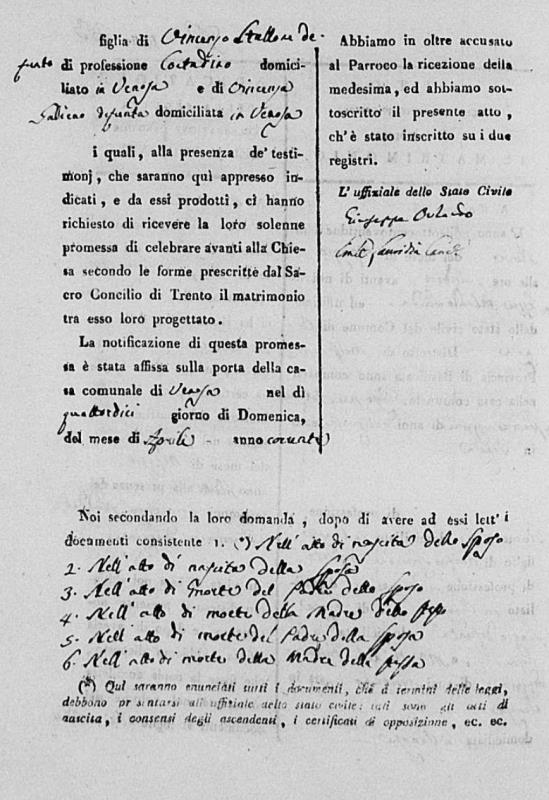 figlia di Vincenzo Stallone de-
funto di professione Contadino domici-
liato in Venosa e di Vincenza
defunta domiciliata in Venosa
i quali, alla presenza de' testi-
monj, che saranno quì appresso in-
dicati, e da essi prodotti, ci hanno
richiesto di ricevere la loro solenne
promessa di celebrare avanti alla Chie-
sa secondo le forme prescritte dal Sa-
cro Concilio di Trento il matrimonio
tra esso loro progettato.
La notificazione di questa promes-
sa è stata affissa sulla porta della ca-
sa comunale di Venosa nel dì
quattordici giorno di Domenica,
del mese di Aprile anno corrente
Abbiamo in oltre accusato
al Parroco la ricezione della
medesima, ed abbiamo sot-
toscritto il presente atto,
ch'è stato inscritto su i due
registri.
L'uffiziale dello Stato Civile
Giuseppe Orlando
Noi secondando la loro domanda, dopo di avere ad essi lett' i
documenti consistente 1. (*) Nell'atto di nascita dello Sposo
2. Nell'atto di nascita della Sposa
3. Nell'atto di morte del Padre dello Sposo
4. Nell'atto di morte della Madre dello stesso
5. Nell'atto di morte del Padre della Sposa
6. Nell'atto di morte della Madre della stessa
(*) Quì saranno enunciati tutti i documenti, che a termini delle leggi,
debbono presentarsi all'uffiziale dello stato civile: tali sono gli atti di
nascita, i consensi degli ascendenti, i certificati di opposizione, ec. ec.